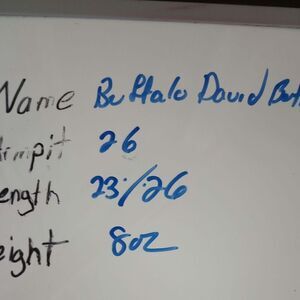 Name Buffalo David Bit
Armpit 26
ength 23/26
eight 8oz